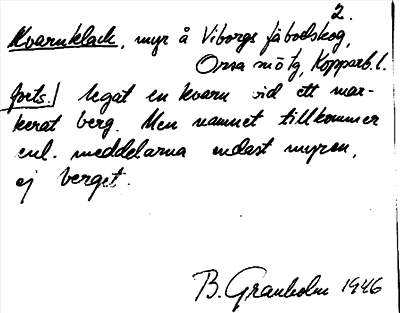 2.
Kvarnklack, myr å Viborgs fäbodskog,
Orsa mötg, Kopparb. l.
forts.) legat en kvarn vid ett mar-
kerat berg. Men namnet tillkommer
enl. meddelarna endast myren,
ej berget.
B. Granholm 1946